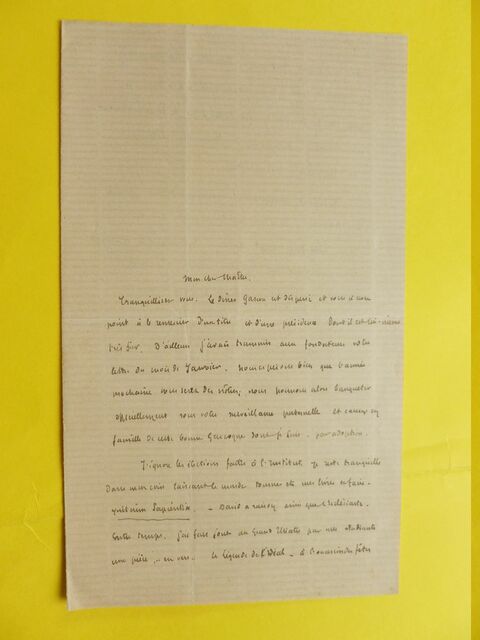 Mon cher Maître,
Tranquillisez vous. Le dîner Gascon est dispersé et vous n'avez
point à le remercier d'un titre et d'une présidence dont il est lui-même
très fier. D'ailleurs j'avais transmis aux fondateurs votre
lettre du mois de Janvier. nous espérons bien que l'année
prochaine vous serez des nôtres, nous pourrons alors banqueter
officiellement sous votre surveillance paternelle et causer en
famille de cette bonne Gascogne dont je suis par adoption.
J'ignore les élections faites à l'Institut. je reste tranquille
dans mon coin laissant le monde tourner et mes livres se faire.
David a raison, ainsi que l'Ecclésiaste.
temps, j'ai fait jouer au Grand Théâtre par mes étudiants
une pièce, .. en vers. La légende de l'Idéal. à l'occasion des fêtes